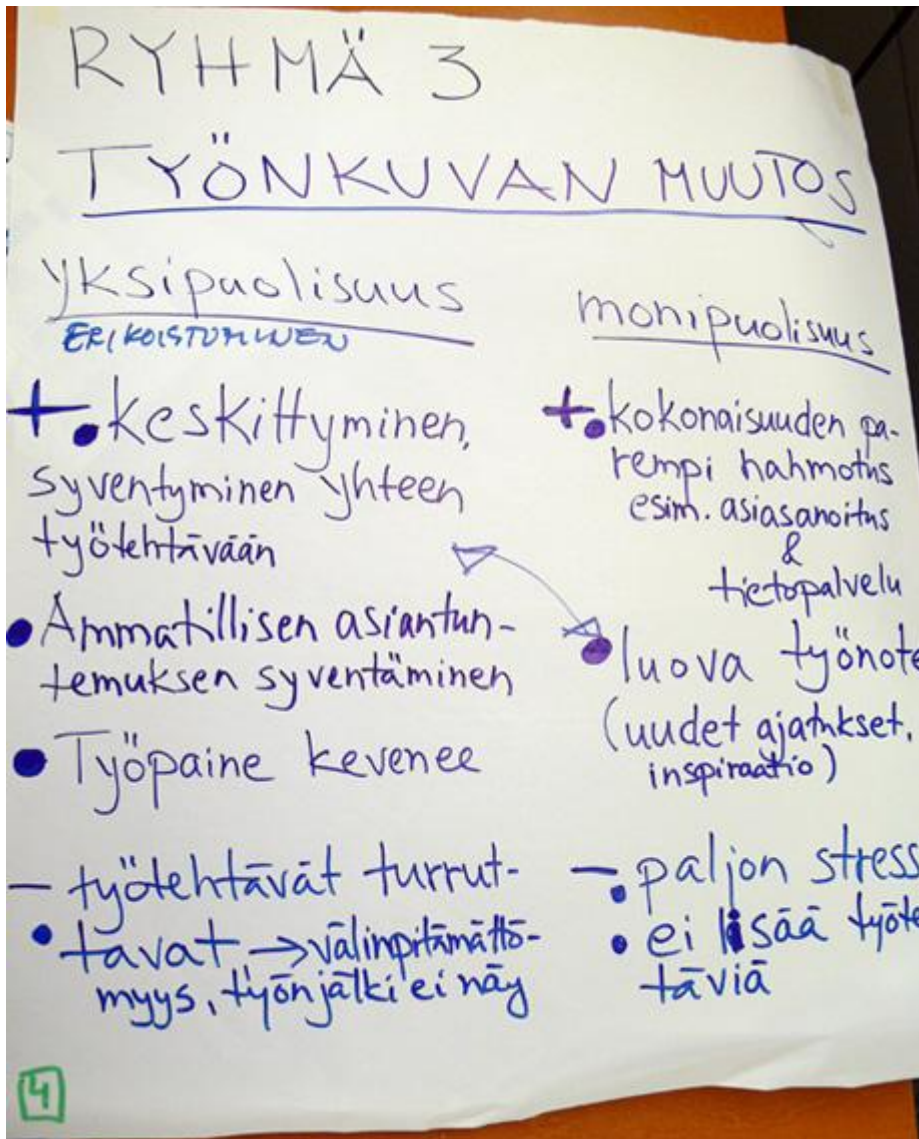 RYHMÄ 3
TYÖNKUVAN MUUTOS
yksipuolisuus
ERIKOISTUMINEN
+ • keskittyminen,
syventyminen yhteen
työtehtävään
• Ammatillisen asiantun-
temuksen syventäminen
• Työpaine kevenee
- työtehtävät turrut-
• tavat → välinpitämättö-
myys, työnjälki ei näy
monipuolisuus
+ • kokonaisuuden pa-
rempi hahmotus
esim. asiasanoitus
&
tietopalvelu
• luova työnote
(uudet ajatukset,
inspiraatio)
- • paljon stress
• ei lisää työte
täviä
4